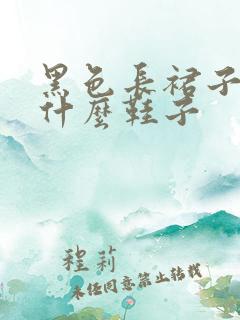 黑色長裙子
什麼鞋子
程莉
未任同意禁止转载